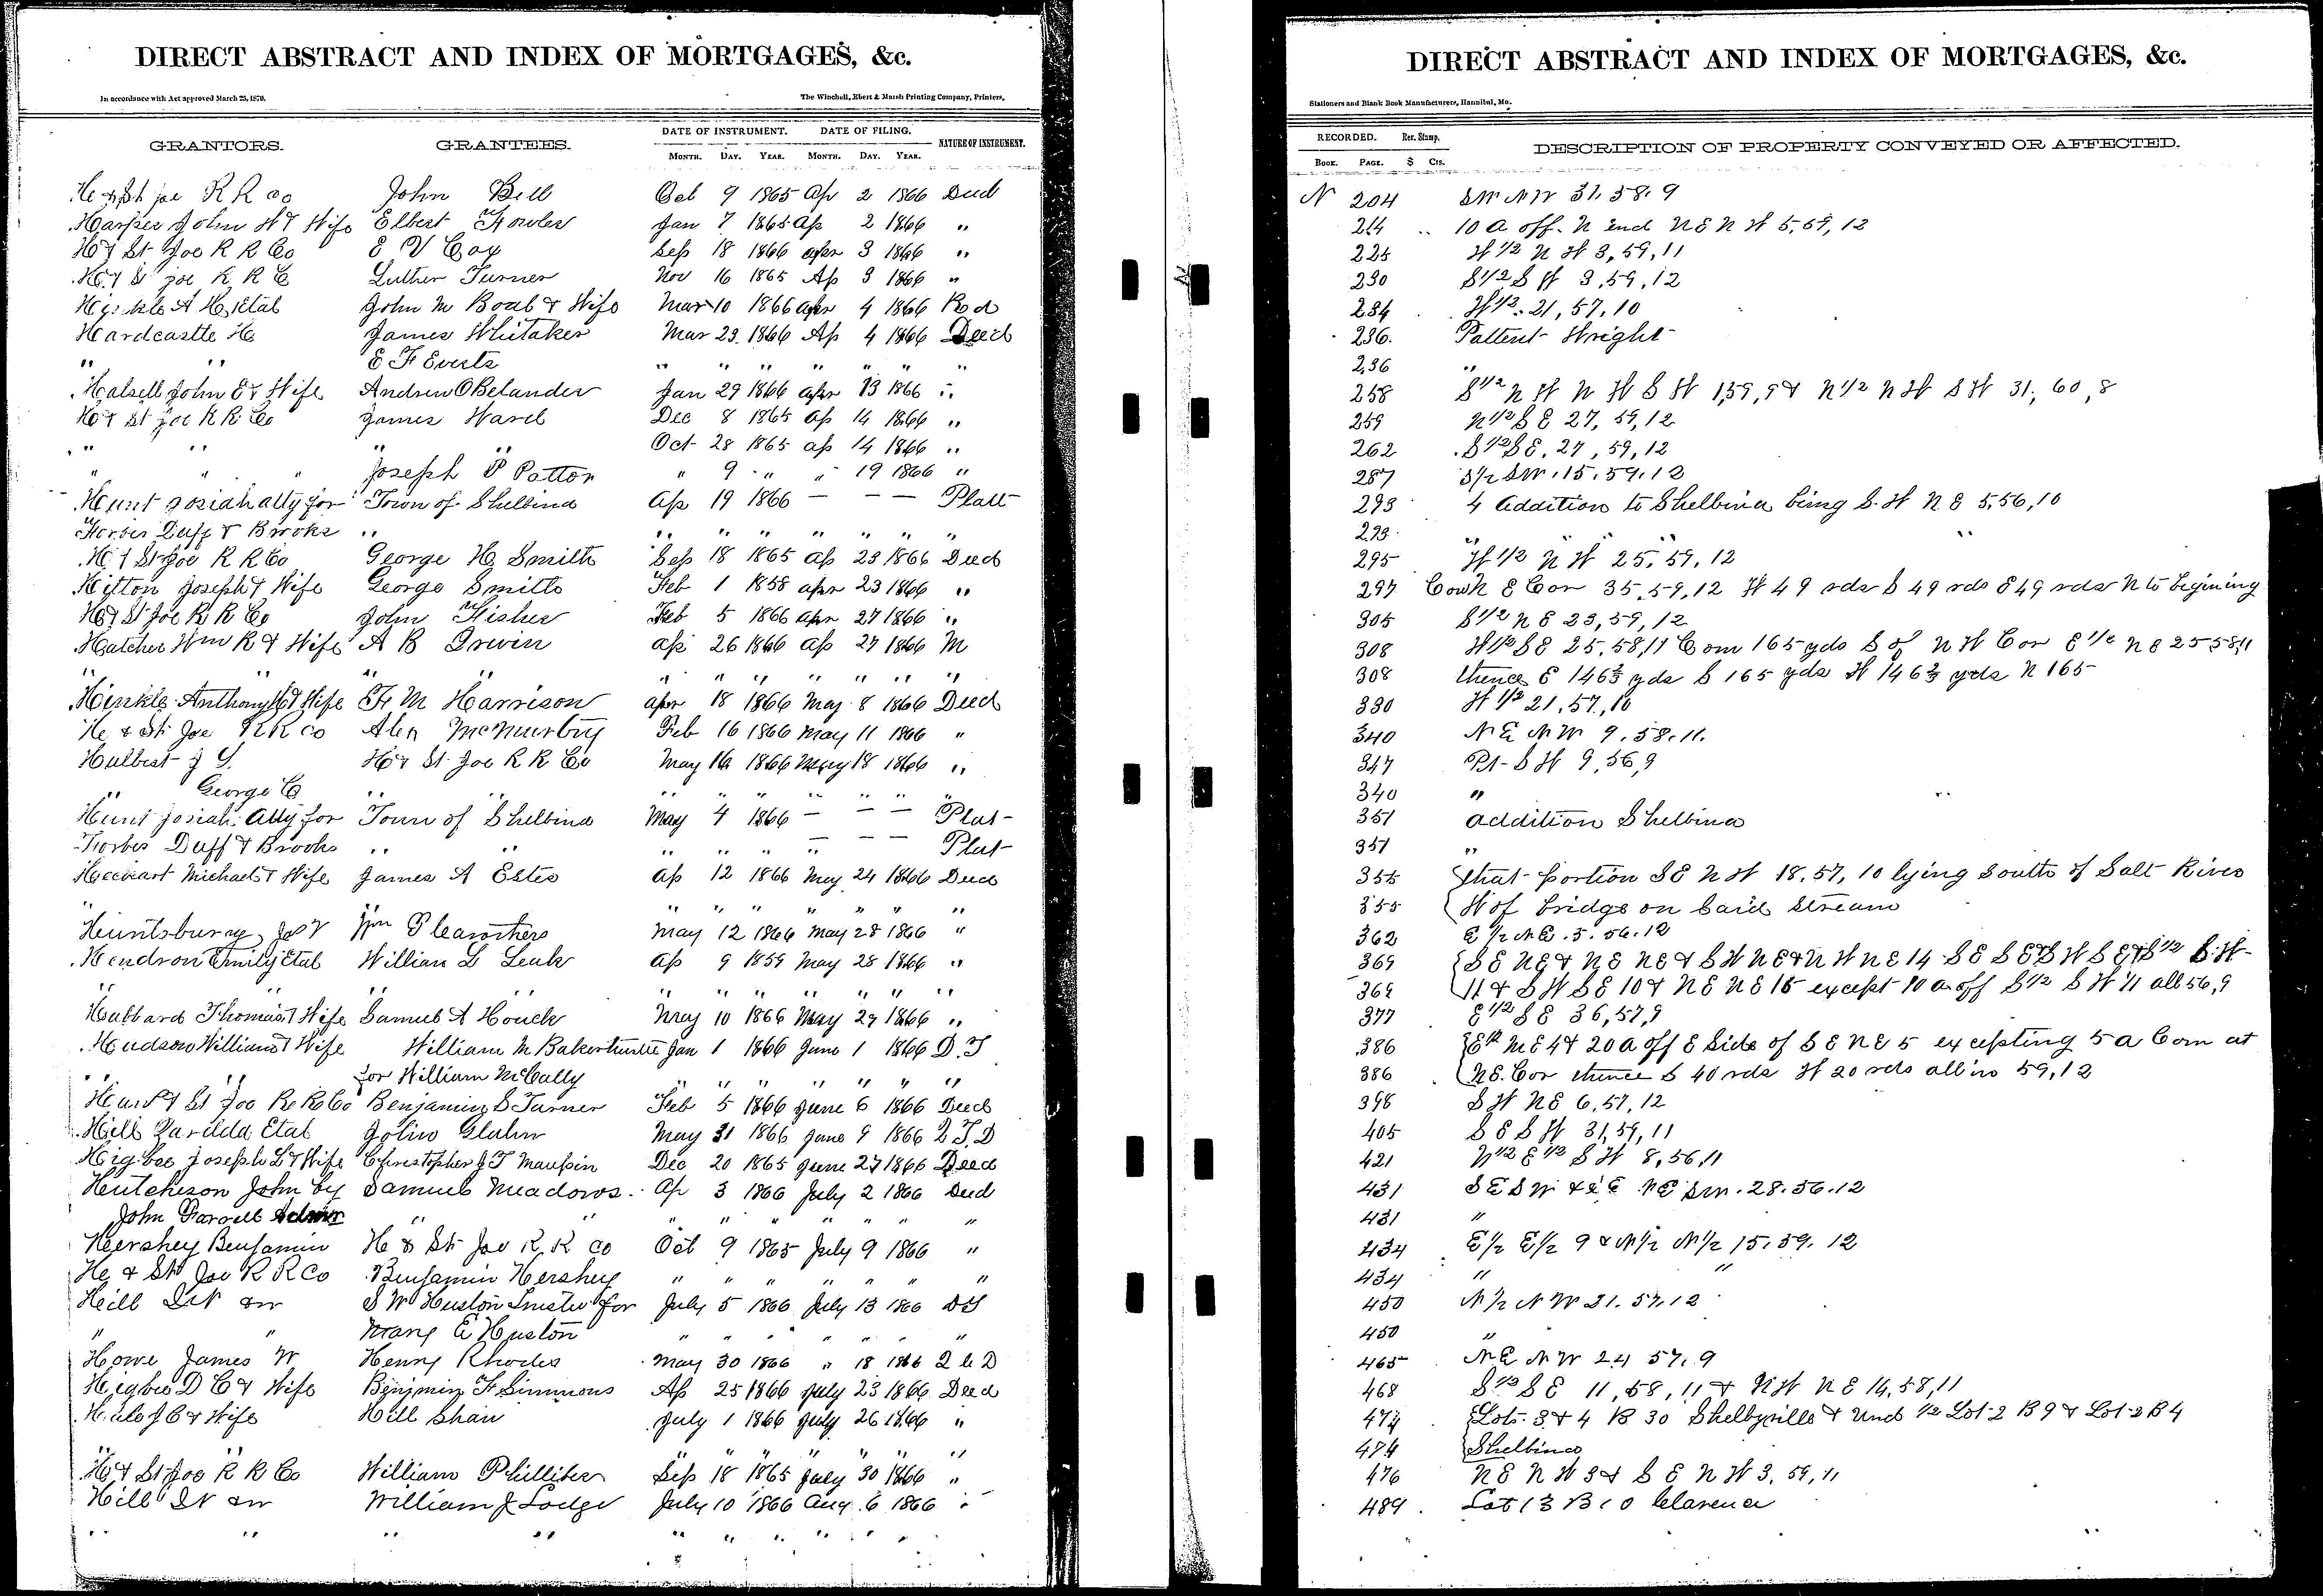 DIRECT ABSTRACT AND INDEX OF MORTGAGES, &c.
In accordance with Act approved March 25, 1870.
The Winchell, Ebert & Marsh Printing Company, Printers,
GRANTORS. GRANTEES. DATE OF INSTRUMENT. DATE OF FILING. NATURE OF INSTRUMENT.
MONTH. DAY. YEAR. MONTH. DAY. YEAR.
H & St joe R R co John Bell Oct 9 1865 Ap 2 1866 Deed
Harper John W & Wife Elbert Fowler Jan 7 1865 Ap 2 1866 "
H & St Joe R R Co E V Cox Sep 18 1866 apr 3 1866 "
H & St joe R R C Luther Turner Nov 16 1865 Ap 3 1866 "
Hinkle A H, Etal John M Boal & Wife Mar 10 1866 apr 4 1866 Rod
Hardcastle H James Whitaker Mar 23 1866 Ap 4 1866 Deed
" " E F Everts " " " " " " "
Halsell John E & Wife Andrew O Belander Jan 29 1866 apr 13 1866 "
H & St Joe R R Co James Ward Dec 8 1865 ap 14 1866 "
" " " " Oct 28 1865 ap 14 1866 "
" " " Joseph P Patton " 9 " " 19 1866 "
Hunt Josiah atty for Town of Shelbina Ap 19 1866 — — — Platt
Forbes Duff & Brooks " " " " " " " "
H & St Joe R R Co George H Smith Sep 18 1865 ap 23 1866 Deed
Hilton Joseph & Wife George Smith Feb 1 1858 apr 23 1866 "
H & St Joe R R Co John Fisher Feb 5 1866 apr 27 1866 "
Hatcher Wm R & Wife A B Irwin ap 26 1866 ap 27 1866 M
" " " " " " " " " " "
Hinkle Anthony H & Wife F M Harrison apr 18 1866 May 8 1866 Deed
H & St Joe R R co Alex McMurtry Feb 16 1866 May 11 1866 "
Hulbert J Y. H & St Joe R R Co May 16 1866 May 18 1866 "
" George C " " " " " " " "
Hunt Josiah Atty for Town of Shelbina May 4 1866 — — — Plat
Forbes Duff & Brooks " " " " " — — — Plat
Michael & Wife James A Estes Ap 12 1866 May 24 1866 Deed
" " " " " " " " "
Huntsbury Jas V Wm P Carothers May 12 1866 May 28 1866 "
Hendron Emily Etal William L Leak Ap 9 1859 May 28 1866 "
" " " " " " " " " " "
Hubbard Thomas & Wife Samuel A Houck May 10 1866 May 29 1866 "
Hudson William & Wife William M Baker trustee Jan 1 1866 June 1 1866 D.T
" " for William McCully " " " " " " "
Han & St Joe R R Co Benjamin S Turner Feb 5 1866 June 6 1866 Deed
Hill Zarilda Etal John Glahn May 31 1866 June 9 1866 Q. T. D
Higbee Joseph L & Wife Christopher J T Maupin Dec 20 1865 June 27 1866 Deed
Hutcheson John by Samuel Meadows Ap 3 1866 July 2 1866 Deed
John Farrell Admr " " " " " " " " "
Hershey Benjamin H & St Joe R. R co Oct 9 1865 July 9 1866 "
H & St Joe R R Co Benjamin Hershey " " " " " " "
Hill S W Huston Trustee for July 5 1866 July 13 1866 DT
" " Mary E Huston " " " " " " "
Howe James W Henry Rhodes May 30 1866 " 18 1866 Q C D
Higbee D C & Wife Benjmin F Simmons Ap 25 1866 July 23 1866 Deed
Hale J C & Wife Hill Shaw July 1 1866 July 26 1866 "
" " " " " " " " "
H & St Joe R R Co William Philliber Sep 18 1865 July 30 1866 "
Hill William J Lodge July 10 1866 Aug 6 1866 "
" " " " " " " " " "
DIRECT ABSTRACT AND INDEX OF MORTGAGES, &c.
Stationers and Blank Book Manufacturers, Hannibal, Mo.
RECORDED. Rev. Stamp. DESCRIPTION OF PROPERTY CONVEYED OR AFFECTED.
BOOK. PAGE. $ Cts.
N 204 SW NW 31. 58. 9
214 " 10 a off N end N E N W 5, 59, 12
225 W 1/2 N W 3, 59, 11
230 S 1/2 S W 3, 59, 12
234 W 1/2 21, 57, 10
236 Pattent Wright
236 "
258 S 1/2 N W N W S W 1, 59, 9 & N 1/2 N W S W 31, 60, 8
259 N 1/2 S E 27, 59, 12
262 S 1/2 S E, 27, 59, 12
287 S 1/2 SW. 15. 59. 12
293 4 Addition to Shelbina being S. W N E 5, 56, 10
293 " "
295 W 1/2 N W 25, 59, 12
297 Com N E Cor 35, 59, 12 W 49 rds S 49 rds E 49 rds N to begining
305 S 1/2 N E 23, 59, 12
308 W 1/2 S E 25, 58, 11 Com 165 yds S of N W Cor E 1/2 N E 25 58, 11
308 thence E 146 2/3 yds S 165 yds W 146 2/3 yds N 165
330 W 1/2 21, 57, 10
340 N E N W 9. 58. 11.
347 Pt S W 9, 56, 9
340 " "
351 addition Shelbina
351 "
355 that portion S E N W 18, 57, 10 lying South of Salt River
355 W of bridge on said stream
362 E 1/2 N E. 5. 56. 12
369 S E N E & N E N E & S W N E & N W N E 14 S E S E & S W S E & S 1/2 S W
369 11 & S W S E 10 & N E N E 15 except 10 a off S 1/2 S W 11 all 56, 9
377 E 1/2 S E 36, 57, 9
386 E 1/2 N E 4 & 20 a off E Side of S E N E 5 excepting 5 a Com at
386 N E. Cor thence S 40 rds W 20 rds all in 59, 12
398 S W N E 6, 57, 12
405 S E S W 31, 59, 11
421 N 1/2 E 1/2 S W 8, 56, 11
431 S E S W & NE SW. 28. 56. 12
431 "
434 E 1/2 E 1/2 9 & N 1/2 N 1/2 15. 59. 12
434 " "
450 N 1/2 N W 31. 57. 12
450 "
465 N E N W 24 57. 9
468 S 1/2 S E 11, 58, 11 & N W N E 14, 58, 11
474 Lots 3 & 4 B 30 Shelbyville & Und 1/2 Lot 2 B 9 & Lot 2 B 4
474 Shelbina
476 N E N W 3 & S E N W 3, 59, 11
489 Lot 13 B 10 Clarence